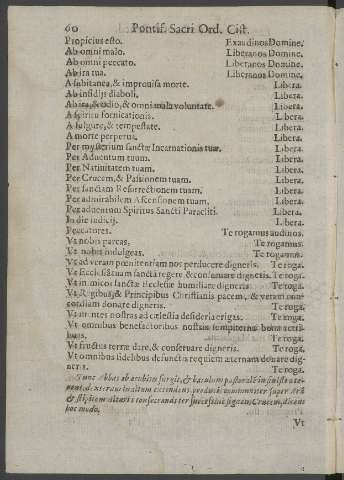 60 Pontif. Sacri Ord. Cist.
Propicius esto. Exaudinos Domine.
Ab omni malo. Liberanos Domine.
Ab omni peccato. Liberanos Domine.
Ab ira tua. Liberanos Domine.
A subitanea, & improuisa morte. Libera.
Ab insidijs diaboli. Libera.
Ab ira, & odio, & omni mala voluntate. Libera.
A spiritu fornicationis. Libera.
A fulgure, & tempestate. Libera.
A morte perpetua. Libera.
Per mysterium sanctæ Incarnationis tuæ. Libera.
Per Aduentum tuum. Libera.
Per Natiuitatem tuam. Libera.
Per Crucem, & Passionem tuam. Libera.
Per sanctam Resurrectionem tuam. Libera.
Per admirabilem Ascensionem tuam. Libera.
Per aduentum Spiritus Sancti Paracliti. Libera.
In die iudicij. Libera.
Peccatores. Te rogamus audinos.
Vt nobis parcas. Te rogamus.
Vt nobis indulgeas. Te rogamus.
Vt ad veram pœnitentiam nos perducere digneris. Te roga.
Vt Ecclesiam tuam sanctā regere & conseruare digneris. Te roga.
Vt inimicos sanctæ Ecclesiæ humiliare digneris. Te roga.
Vt Regibus, & Principibus Christianis pacem, & veram con-
cordiam donare digneris. Te roga.
Vt mentes nostras ad cælestia desideria erigas. Te roga.
Vt omnibus benefactoribus nostris sempiterna bona retri-
buas. Te roga.
Vt fructus terræ dare, & conseruare digneris. Te roga.
Vt omnibus fidelibus defunctis requiem æternam donare dig-
neris. Te roga.
Tunc Abbas ab accubitu surgit, & baculum pastoralē in sinistra te-
nens, dextera in altum extendens producit communiter super Arā
& stipitem altaris consecrandi ter successiue signum Crucis, dicens
hoc modo.
Vt